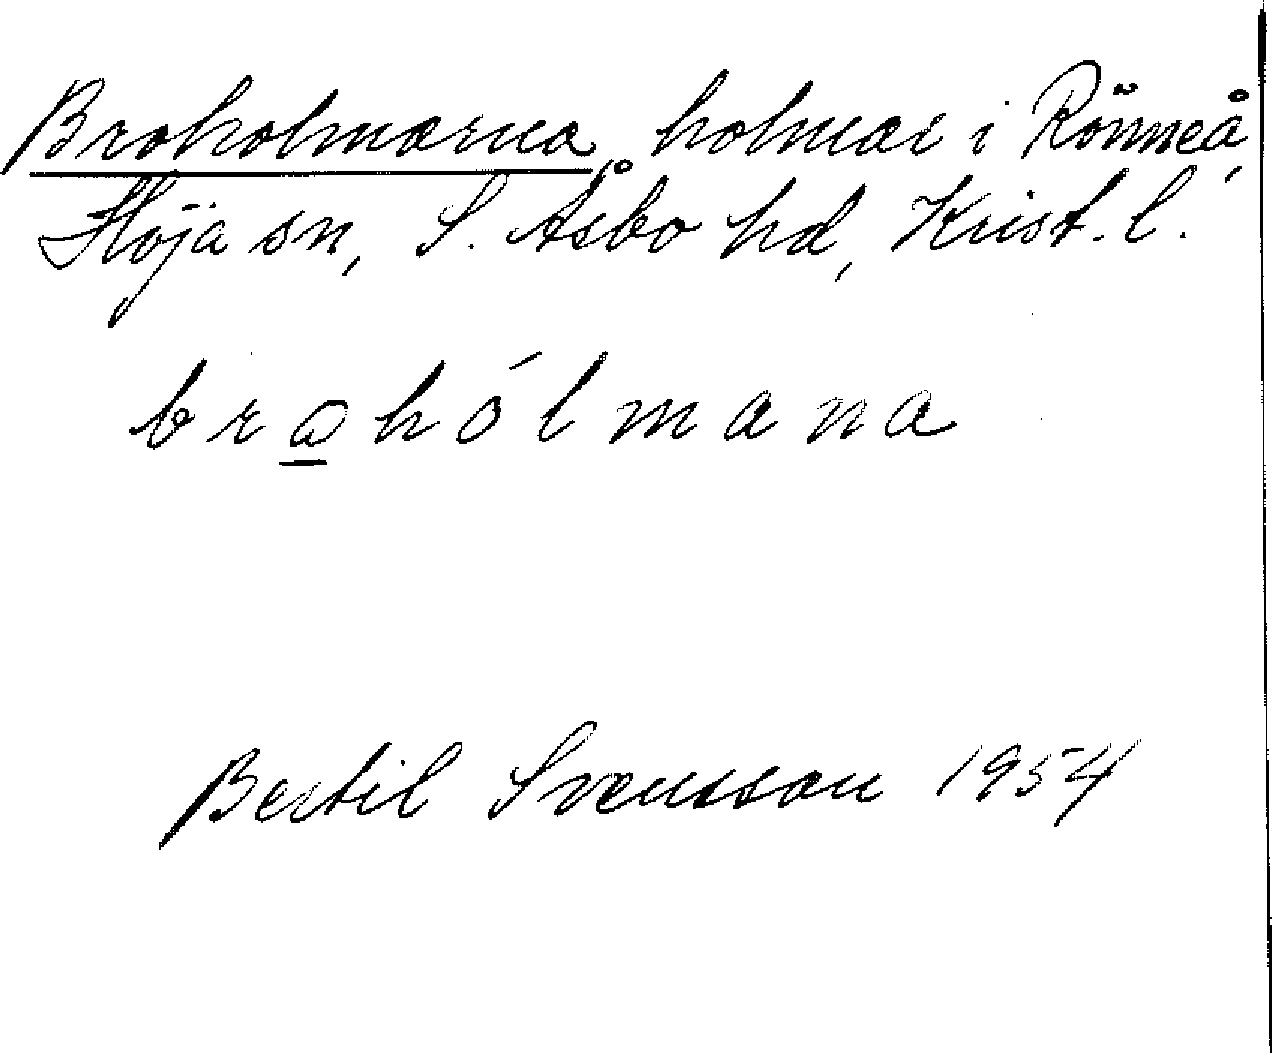 Broholmarna, holmar i Rönneå,
Höja sn, S. Åsbo hd, Krist. l.
brɷhólmana
Bertil Svensson 1954